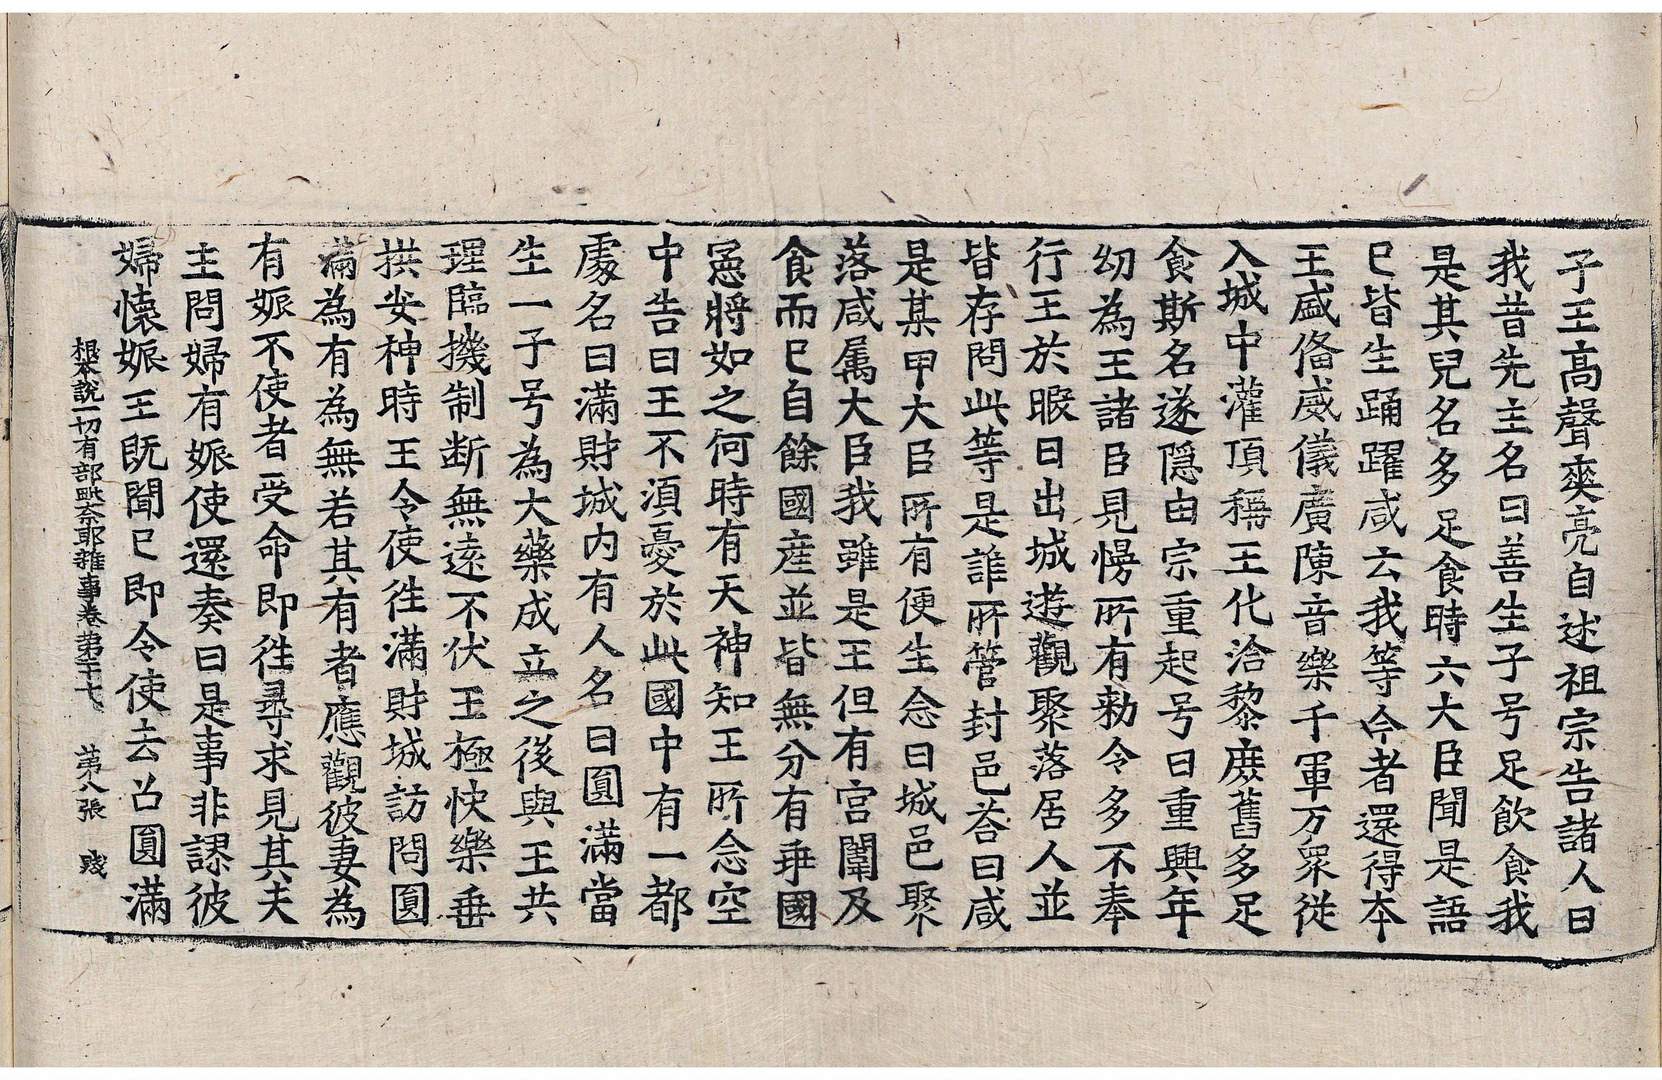 子王高聲爽亮自述祖宗告諸人曰
我昔先主名曰善生子号足飲食我
是其兒名多足食時六大臣聞是語
已皆生踊躍咸云我等今者還得本
王盛俻威儀廣陳音樂千軍万衆從
入城中灌頂稱王化洽黎庶舊多足
食斯名遂隠由宗重起号曰重興年
幼為王諸臣見慢所有勑令多不奉
行王於暇日出城遊觀聚落居人並
皆存問此等是誰所管封邑荅曰咸
是某甲大臣所有便生念曰城邑聚
落咸属大臣我雖是王但有宮闈及
食而已自餘國産並皆無分有乖國
憲將如之何時有天神知王所念空
中告曰王不湏憂於此國中有一都
處名曰滿財城内有人名曰圓滿當
生一子号為大藥成立之後與王共
理臨機制断無遠不伏王極快樂垂
拱安神時王令使徃滿財城訪問圓
滿為有為無若其有者應觀彼妻為
有娠不使者受命即徃尋求見其夫
主問婦有娠使還奏曰是事非謬彼
婦懷娠王旣聞已即令使去召圓滿
根本說一切有部毗奈耶雜事卷苐二十七　苐八張　賤